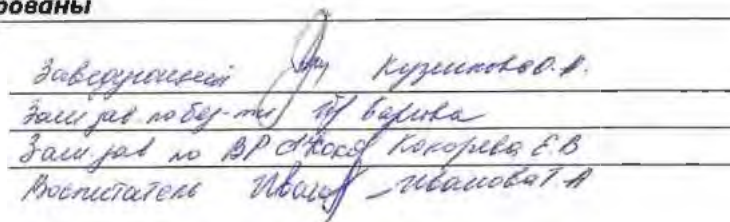 рованы
Заведующий Кузишкова О.А.
Зам.зав по без-ти Барива
Зам.зав по ВР Кокорева Е.В
Воспитатель Иванова Т.А